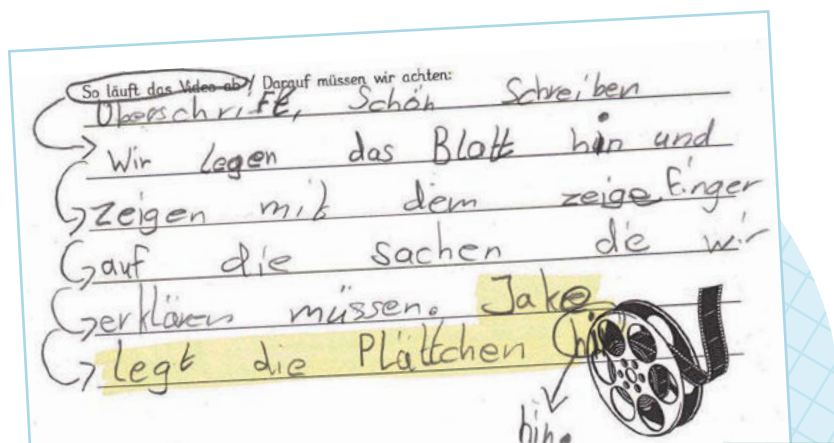 So läuft das Video ab! Darauf müssen wir achten:
Überschrift, Schön Schreiben
Wir legen das Blatt hin und
zeigen mit dem zeige Finger
auf die sachen die wir
erklären müssen. Jake
legt die Plättchen hin
hin.